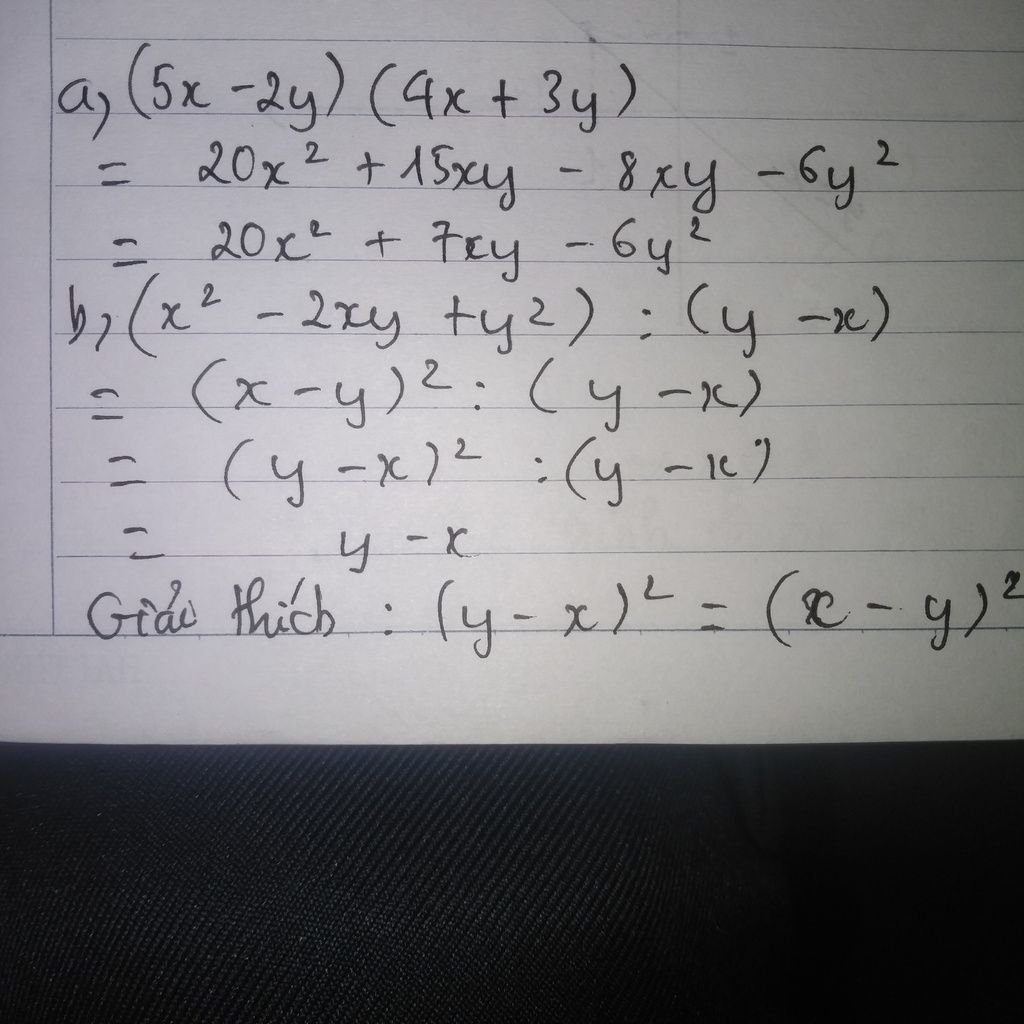 a, (5x - 2y) (4x + 3y)
= 20x² + 15xy - 8xy - 6y²
= 20x² + 7xy - 6y²
b, (x² - 2xy + y²) : (y - x)
= (x - y)² : (y - x)
= (y - x)² : (y - x)
= y - x
Giải thích : (y - x)² = (x - y)²